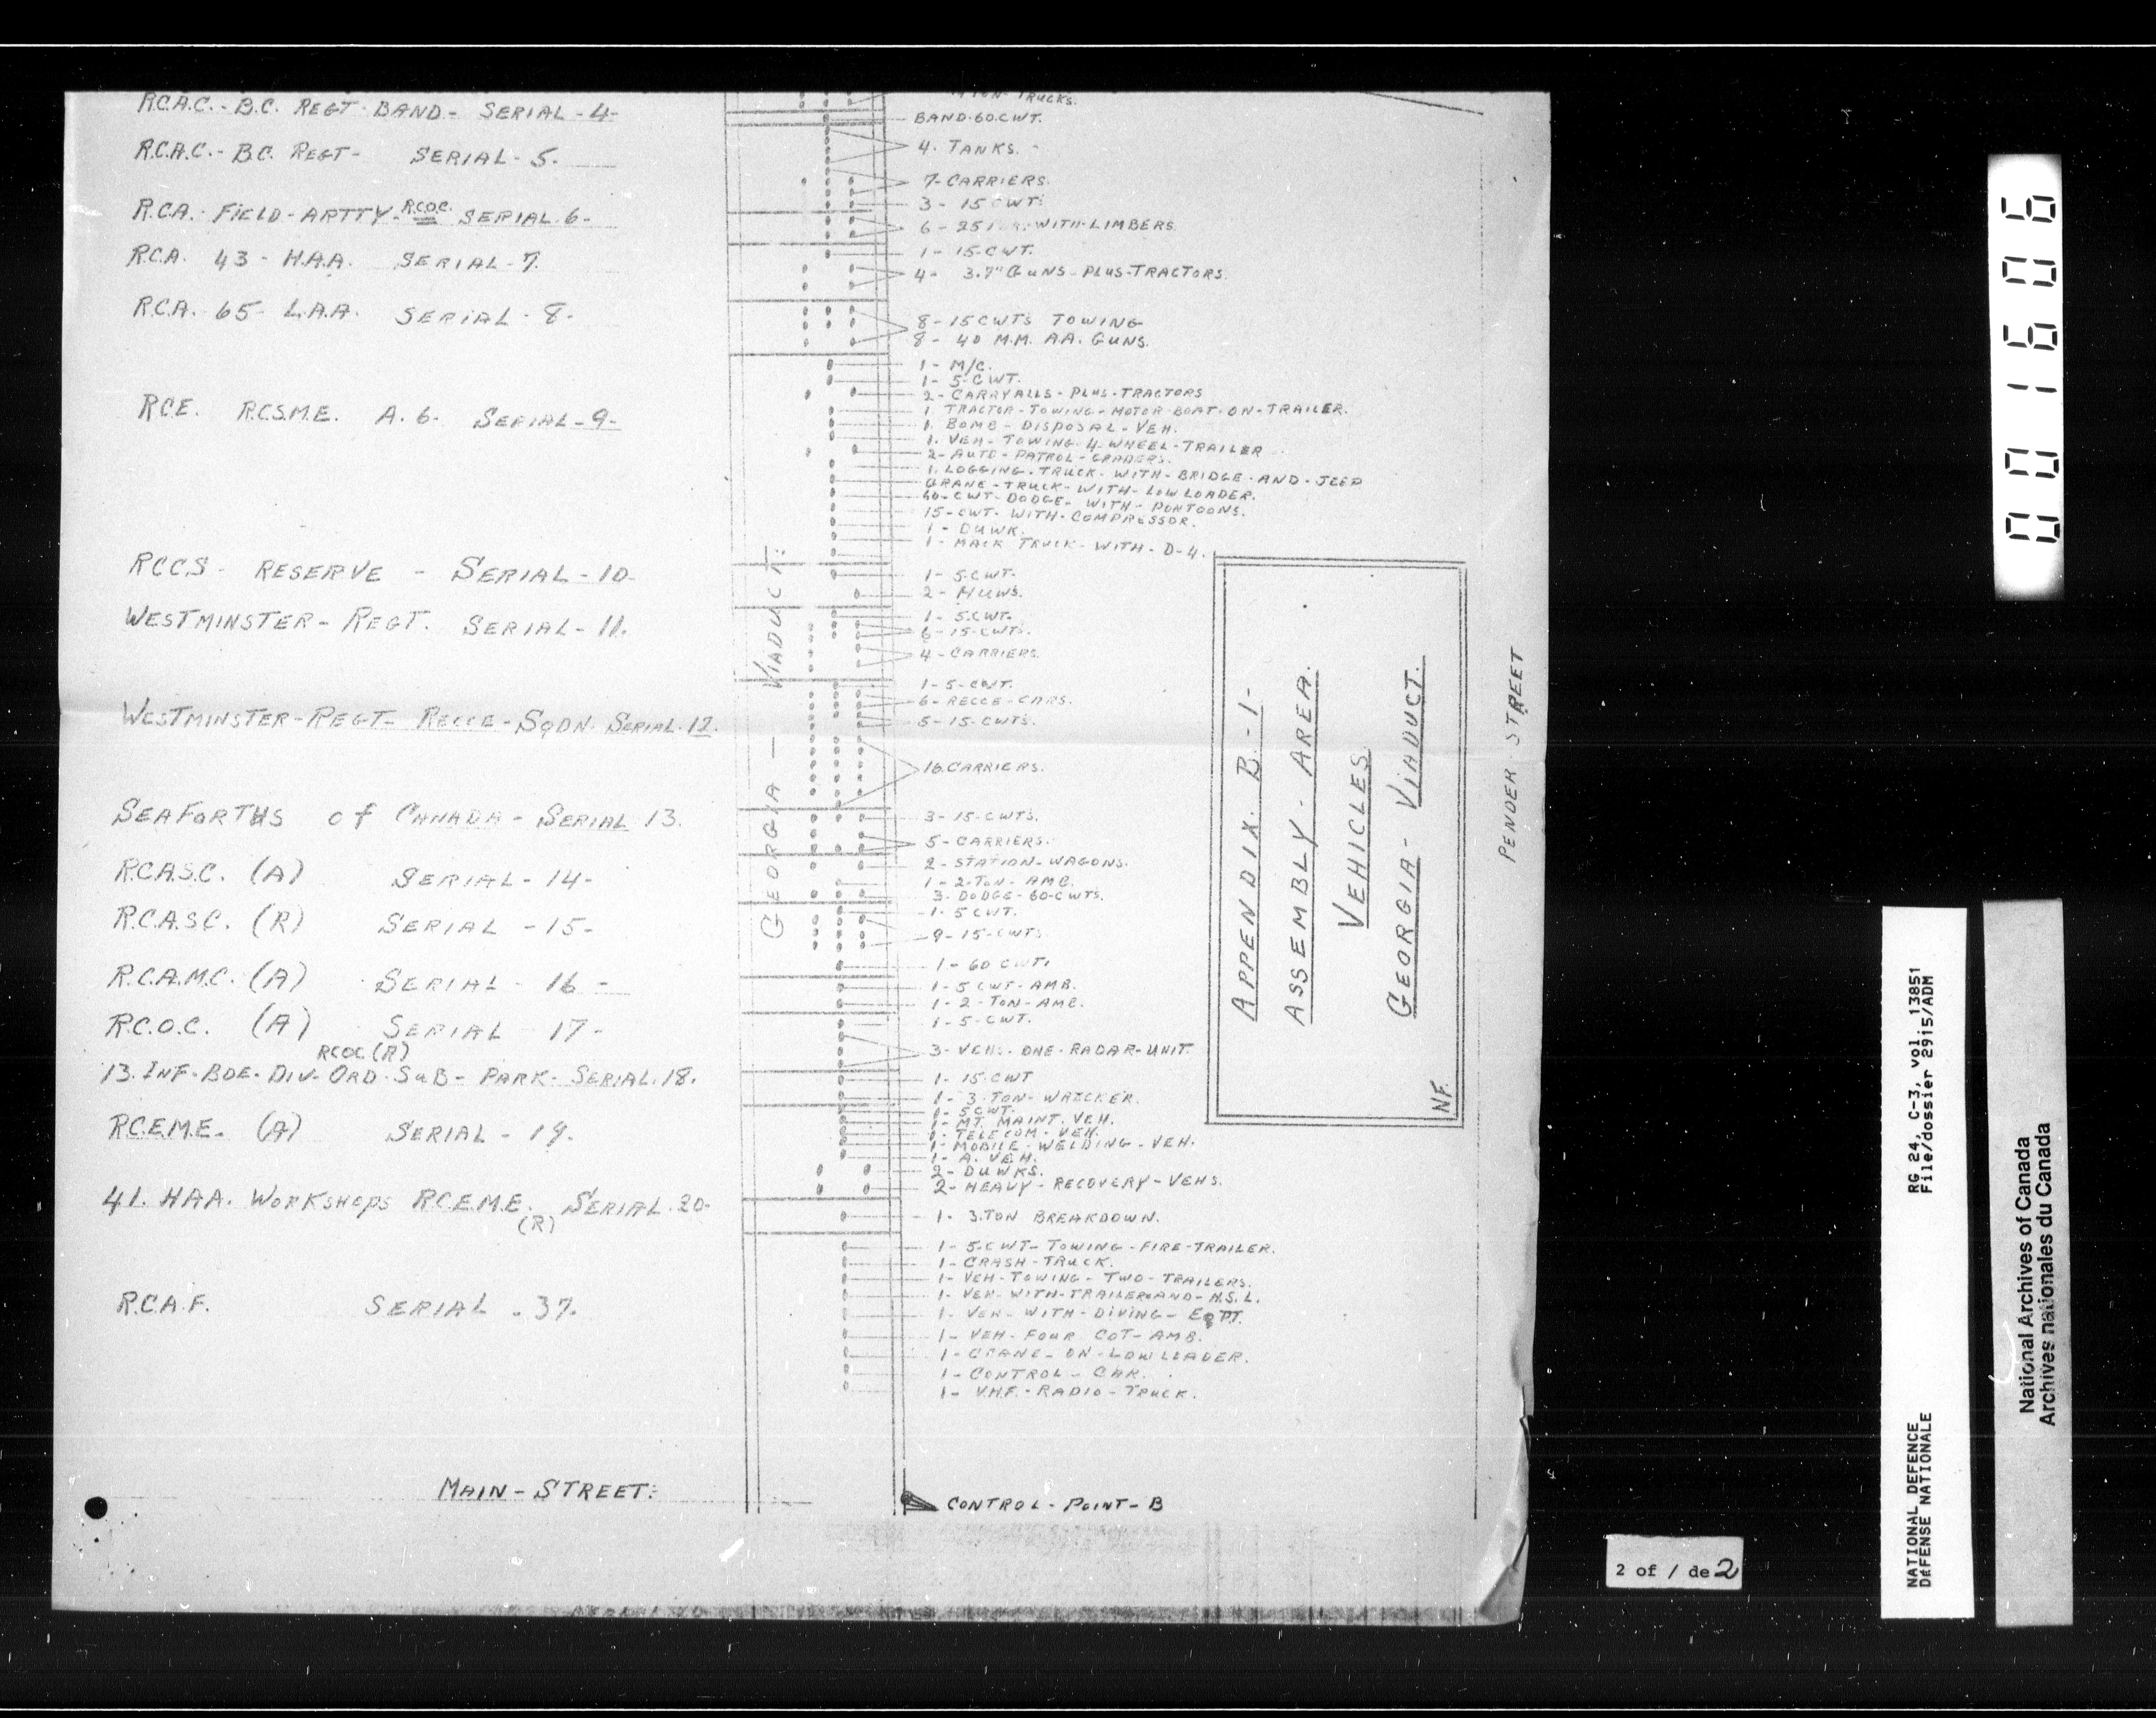 R.C.A.C. - B.C. REGT - BAND - SERIAL - 4 -
R.C.A.C. - B.C. REGT - SERIAL - 5.
R.C.A. FIELD - ARTTY - RCOC. SERIAL. 6 -
R.C.A. 43 - H.A.A. SERIAL - 7.
R.C.A. 65 - L.A.A. SERIAL - 8.
R.C.E. R.C.S.M.E. A. 6. SERIAL - 9 -
RCCS - RESERVE - SERIAL - 10 -
WESTMINSTER - REGT. SERIAL - 11.
WESTMINSTER - REGT - RECCE - SQDN. SERIAL. 12.
SEAFORTHS of CANADA - SERIAL 13.
R.C.A.S.C. (A) SERIAL - 14 -
R.C.A.S.C. (R) SERIAL - 15 -
R.C.A.M.C. (A) SERIAL - 16 -
R.C.O.C. (A) SERIAL 17 -
RCOC (R)
13. INF - BDE - DIV - ORD - SUB - PARK - SERIAL. 18.
R.C.E.M.E. (A) SERIAL - 19.
41. HAA. WORKSHOPS R.C.E.M.E. (R) SERIAL. 20 -
R.C.A.F. SERIAL - 37.
MAIN - STREET.
GEORGIA - VIADUCT.
TON - TRUCKS.
BAND. 60. CWT.
4. TANKS. -
7 - CARRIERS.
3 - 15 CWT.
6 - 25 WITH - LIMBERS
1 - 15 - CWT.
4 - 3.7" GUNS - PLUS - TRACTORS.
8 - 15 CWTS TOWING
8 - 40 M.M. A.A. GUNS.
1 - M/C.
1 - 5 - CWT.
2 - CARRYALLS - PLUS - TRACTORS
1. TRACTOR - TOWING - MOTOR BOAT - ON - TRAILER.
1. BOMB - DISPOSAL - VEH.
1. VEH - TOWING 4 - WHEEL - TRAILER
2 - AUTO - PATROL - GRADERS.
1. LOGGING - TRUCK - WITH - BRIDGE - AND - JEEP
CRANE - TRUCK - WITH - LOW LOADER.
60 - CWT - DODGE - WITH - PONTOONS.
15 - CWT - WITH - COMPRESSOR.
1 - DUWK.
1 - MACK TRUCK - WITH - D-4.
1 - 5 - CWT.
2 - HUWS.
1 - 5 CWT.
6 - 15 - CWTS.
4 - CARRIERS.
1 - 5 - CWT.
6 - RECCE - CARS.
5 - 15 - CWTS.
16 CARRIERS.
3 - 15 - CWTS.
5 - CARRIERS.
2 - STATION - WAGONS.
1 - 2 - TON - AMB.
3. DODGE - 60 - CWTS.
1 - 5 CWT.
9 - 15 - CWTS
1 - 60 CWT.
1 - 5 CWT - AMB.
1 - 2 - TON - AMB.
1 - 5 - CWT.
3 - VEHS - ONE - RADAR - UNIT.
1 - 15 - CWT
1 - 3 - TON - WRECKER.
1 - 5 CWT.
1 - MT. MAINT. VEH.
1 - TELECOM - VEH.
1 - MOBILE - WELDING - VEH.
1 - A. VEH.
2 - DUWKS.
2 - HEAVY - RECOVERY - VEHS.
1 - 3. TON BREAKDOWN.
1 - 5 - CWT - TOWING - FIRE - TRAILER.
1 - CRASH - TRUCK.
1 - VEH - TOWING - TWO - TRAILERS.
1 - VEH - WITH - TRAILER AND - H.S.L.
1 - VEH - WITH - DIVING - EQPT.
1 - VEH - FOUR COT - AMB.
1 - CRANE - ON - LOW LOADER.
1 - CONTROL - CAR.
1 - V.H.F. - RADIO - TRUCK.
CONTROL - POINT - B
APPENDIX. B. - 1 -
ASSEMBLY - AREA.
VEHICLES
GEORGIA - VIADUCT.
NF.
PENDER - STREET
001606
RG 24, C-3, vol. 13851
File/dossier 2915/ADM
NATIONAL DEFENCE
DÉFENSE NATIONALE
National Archives of Canada
Archives nationales du Canada
2 of / de 2